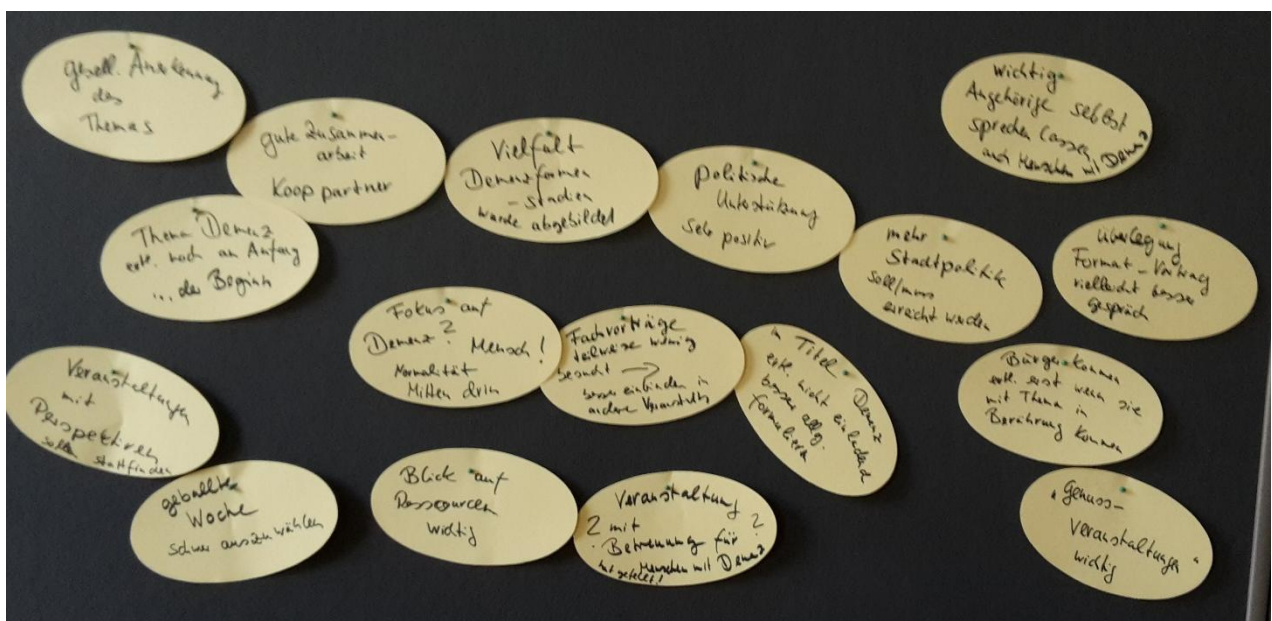 gesell. Anerkennung
des
Themas
gute Zusammen-
arbeit
Kooppartner
Vielfalt
Demenzformen
-stadien
wurde abgebildet
politische
Unterstützung
sehr positiv
wichtig
Angehörige selbst
sprechen lassen
auch Menschen mit Demenz
Thema Demenz
evtl. noch am Anfang
... der Beginn
mehr
Stadtpolitik
soll/muss
erreicht werden
Überlegung
Format - Vortrag
vielleicht besser
gespräch
Fokus auf
Demenz? Mensch!
Normalität
Mitten drin
Fachvorträge
teilweise wenig
besucht →
besser einbinden in
andere Veranstalt.
in Titel Demenz
evtl. nicht einladend
besser allg.
formulieren
Bürger kommen
evtl. erst wenn sie
mit Thema in
Berührung kommen
Veranstaltungen
mit
Perspektiven
sollen stattfinden
geballte
Woche
schwer auszuwählen
Blick auf
Ressourcen
wichtig
Veranstaltung
? mit ?
Betreuung für
Menschen mit Demenz
"Genuss-
Veranstaltungen"
wichtig